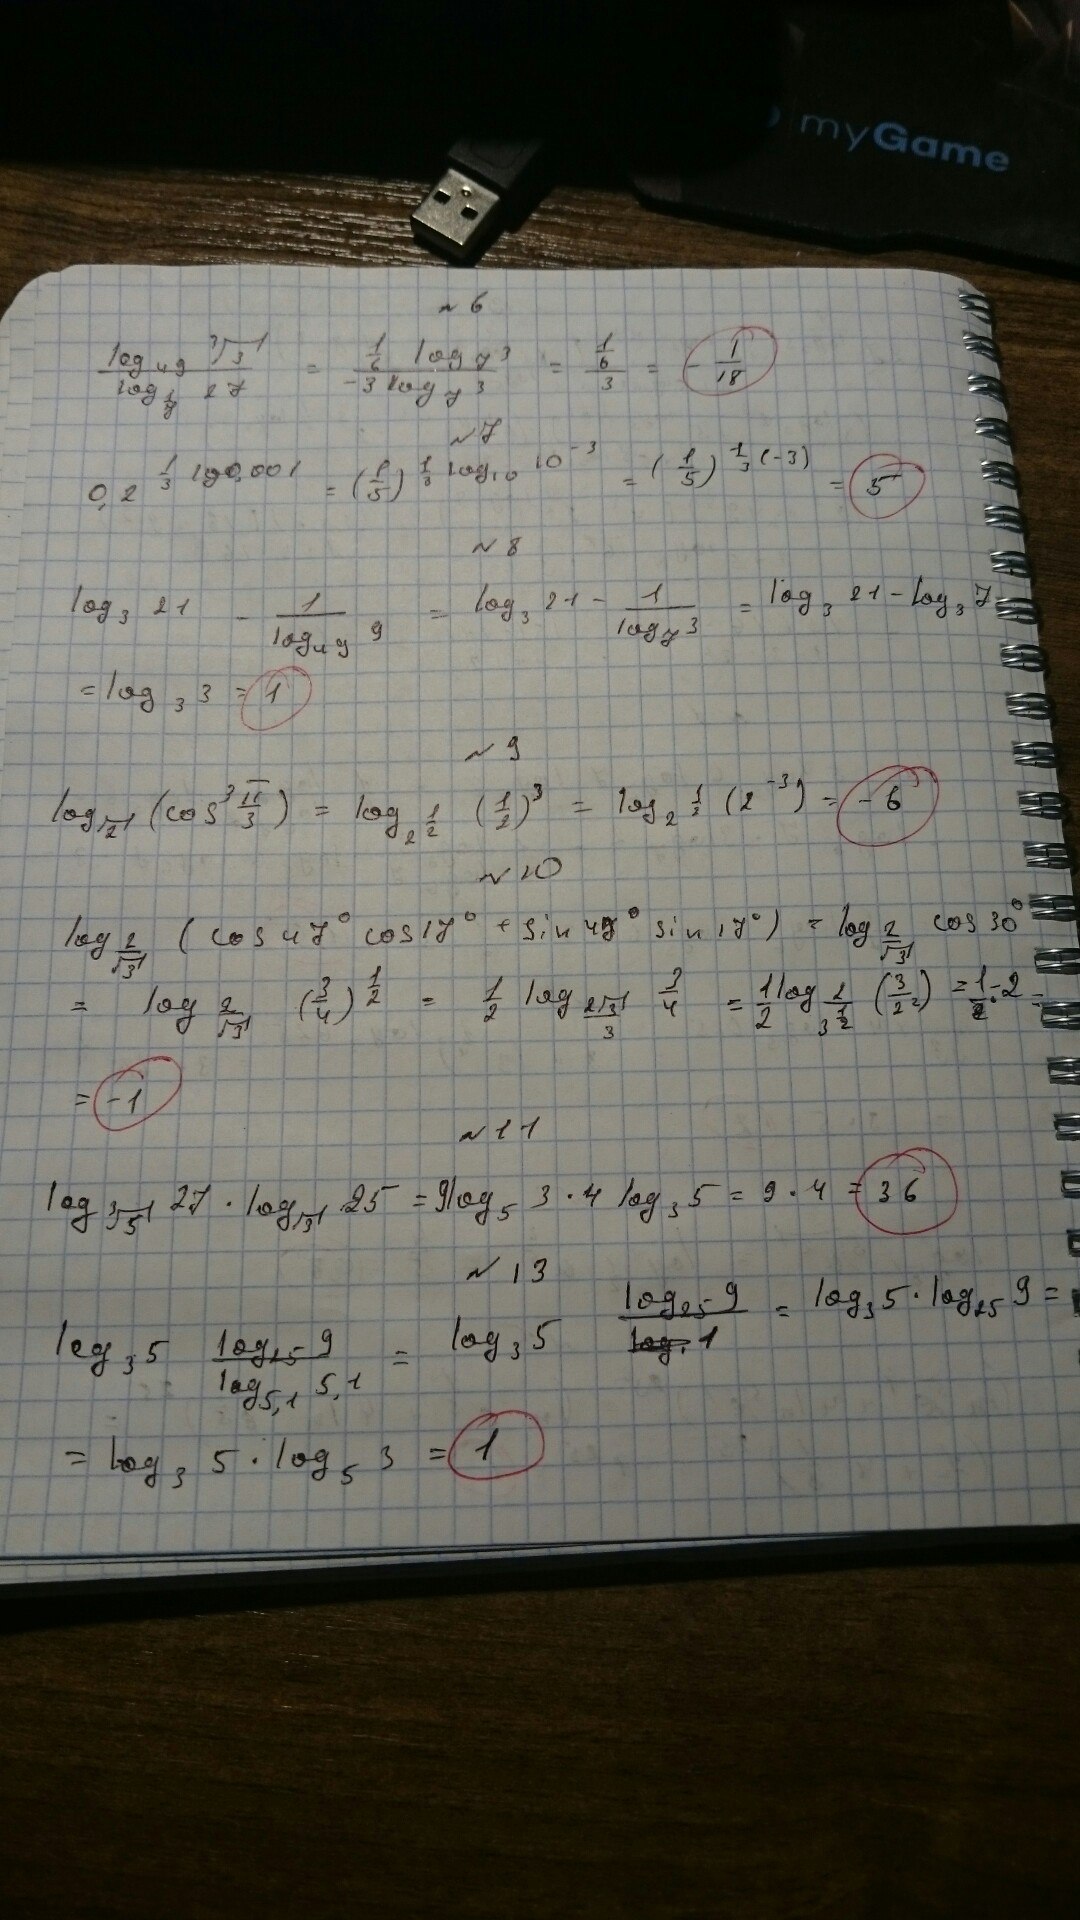 myGame
~ 6
log₄₉ ∛3 / log_{1/7} 27 = 1/6 log₇ 3 / -3 log₇ 3 = 1/6 / 3 = - 1/18
~ 7
0,2^{1/3 lg0,001} = (1/5)^{1/3 log₁₀ 10^{-3}} = (1/5)^{1/3 (-3)} = 5
~ 8
log₃ 21 - 1 / log₄₉ 9 = log₃ 21 - 1 / log₇ 3 = log₃ 21 - log₃ 7
= log₃ 3 = 1
~ 9
log_{√2} (cos³ π/3) = log_{2^{1/2}} (1/2)³ = log_{2^{1/2}} (2^{-3}) = -6
~ 10
log_{2/√3} (cos 47° cos 17° + sin 47° sin 17°) = log_{2/√3} cos 30°
= log_{2/√3} (3/4)^{1/2} = 1/2 log_{2√3/3} 3/4 = 1/2 log_{2/3^{1/2}} (3/2²) = 1/2 · -2 =
= -1
~ 11
log_{∛5} 27 · log_{√3} 25 = 9log₅ 3 · 4 log₃ 5 = 9 · 4 = 36
~ 13
log₃ 5 log₂₅ 9 / log_{5,1} 5,1 = log₃ 5 log₂₅ 9 / 1 = log₃ 5 · log₂₅ 9 =
= log₃ 5 · log₅ 3 = 1